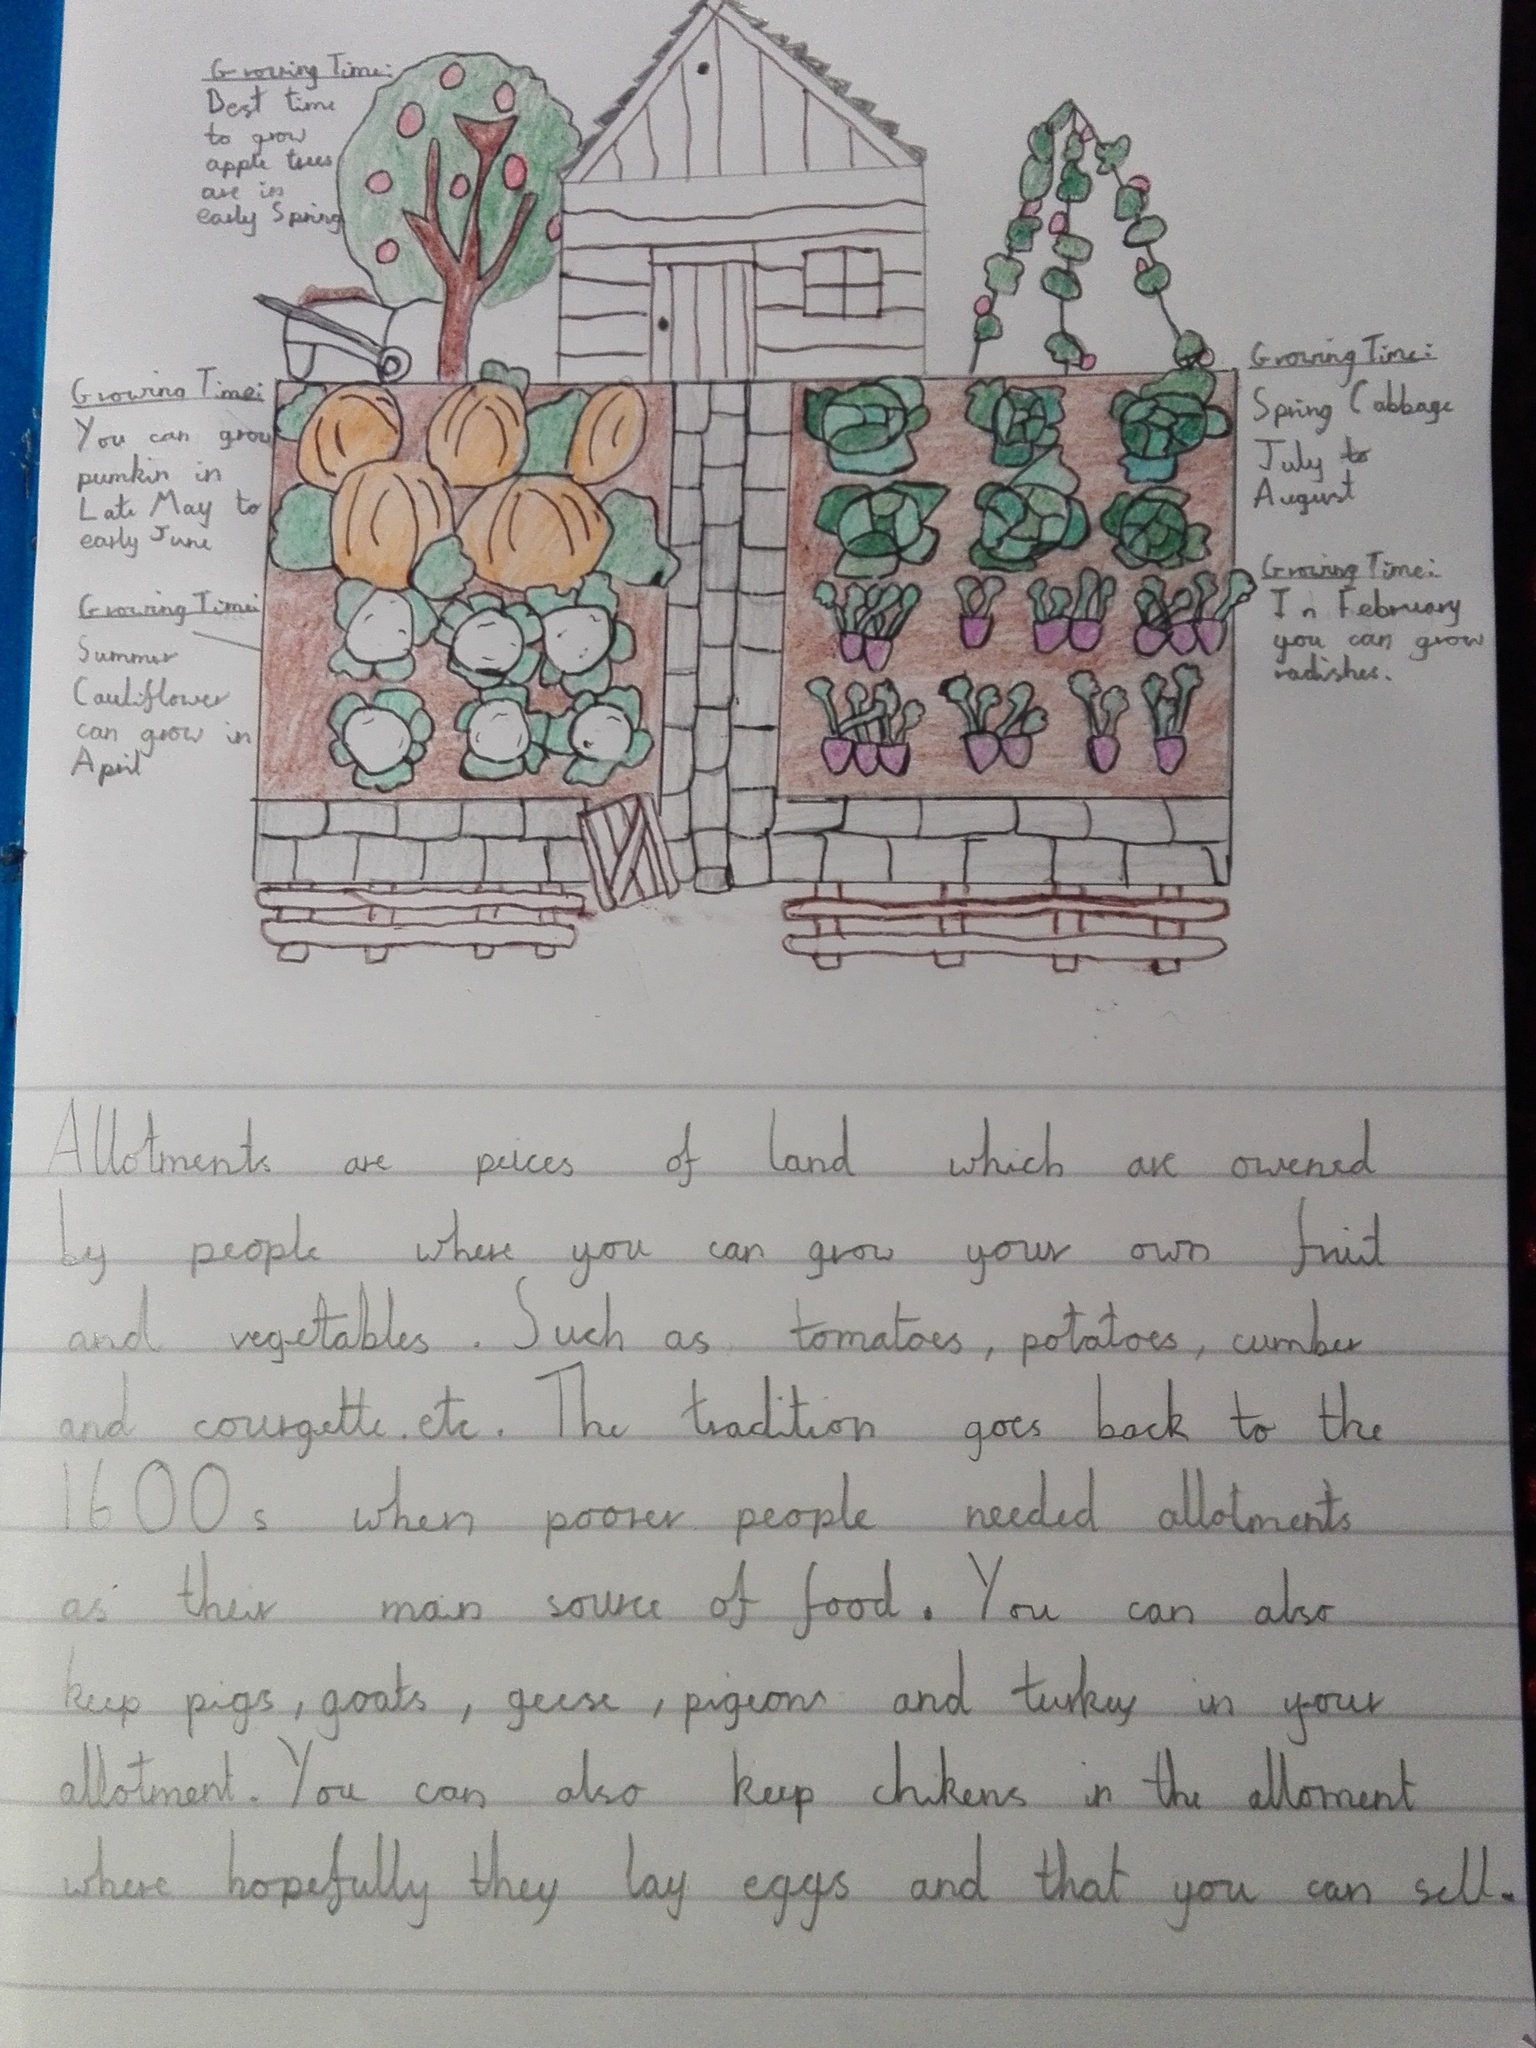 Growing Time:
Best time
to grow
apple trees
are in
early Spring
Growing Time:
You can grow
pumkin in
Late May to
early June
Growing Time:
Summer
Cauliflower
can grow in
April
Growing Time:
Spring Cabbage
July to
August
Growing Time:
In February
you can grow
radishes.
Allotments are peices of land which are owened
by people where you can grow your own fruit
and vegetables. Such as tomatoes, potatoes, cumber
and courgette.etc. The tradition goes back to the
1600s when poorer people needed allotments
as their main source of food. You can also
keep pigs, goats, geese, pigeons and turkey in your
allotment. You can also keep chikens in the alloment
where hopefully they lay eggs and that you can sell.